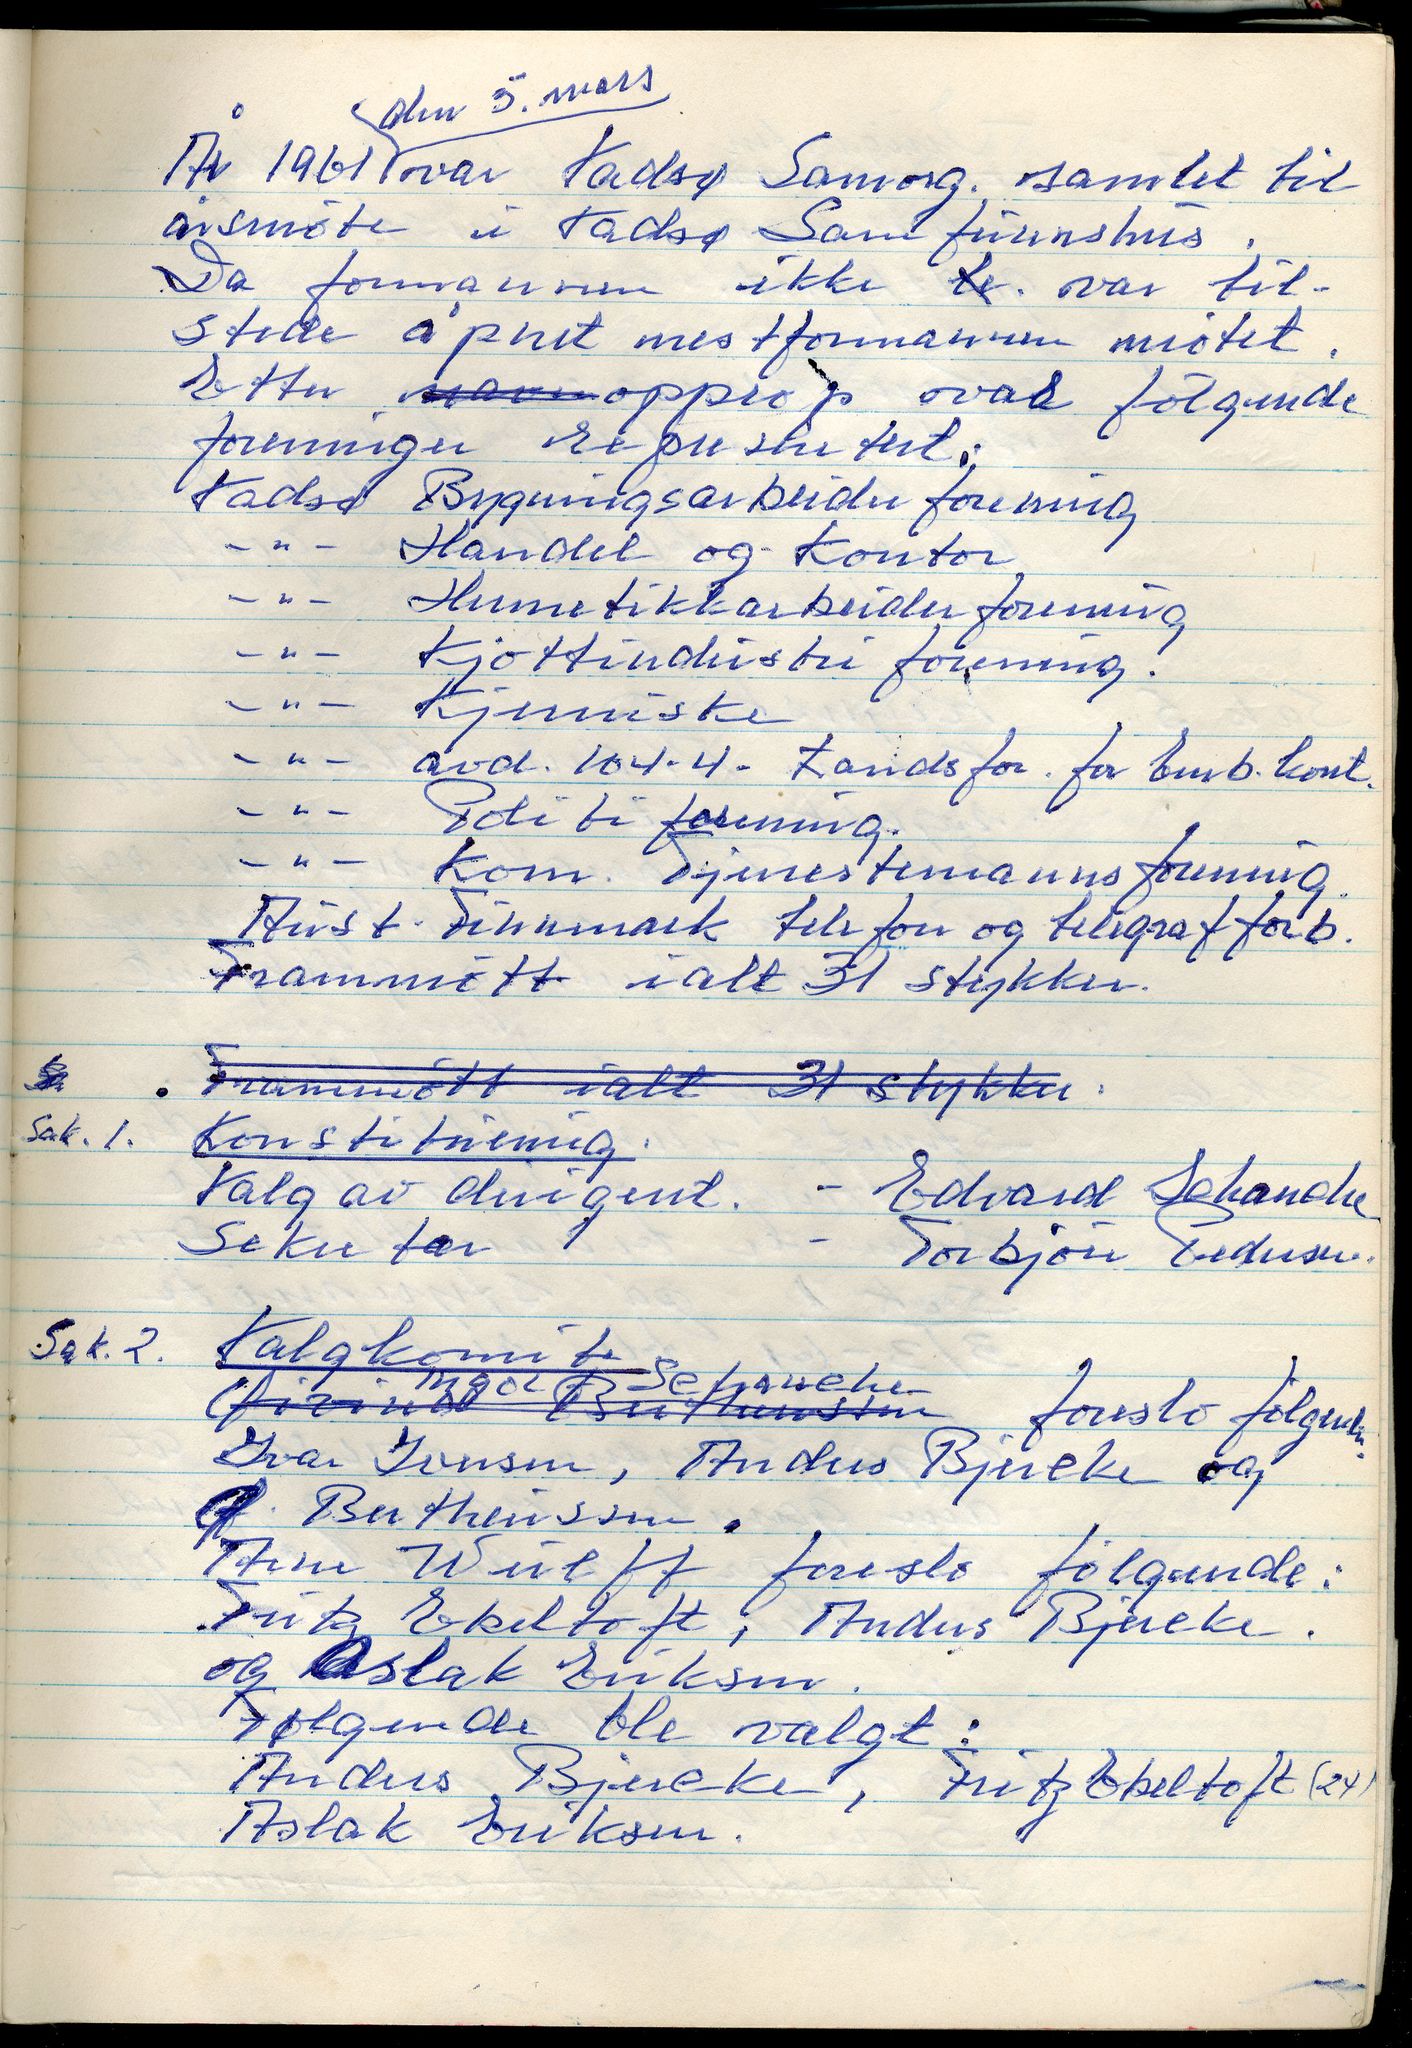 den 5. mars
År 1961 var Vadsø Samorg. samlet til
årsmöte i Vadsø Samfunnshus.
Da formannen ikke te. var til-
stede åpnet nestformannen mötet.
Etter navneopprop var følgende
foreninger representert:
Vadsø Bygningsarbeiderforening
-"- Handel og Kontor
-"- Hermetikkarbeiderforening
-"- Kjøttindustri forening.
-"- Kjemiske
-"- avd. 104.4. Landsfor. for Emb. kont.
-"- Politiforening.
-"- Kom. Tjenestemannsforening.
Aust-Finnmark telefon og telegraf forb.
Frammött ialt 31 stykker.
Frammött ialt 31 stykker.
Sak. 1. Konstituering.
Valg av dirigent. - Edvard Schanche
Sekretær - Torbjörn Pedersen.
Sak. 2. Valgkomite
Schanche
Bertheussen foreslo følgende:
Ivar Iversen, Anders Bjercke og
Bertheussen.
Arne Wulff foreslo følgende:
Fritz Ebeltoft, Anders Bjercke.
og Aslak Eriksen.
Følgende ble valgt:
Anders Bjercke, Fritz Ebeltoft (24)
Aslak Eriksen.